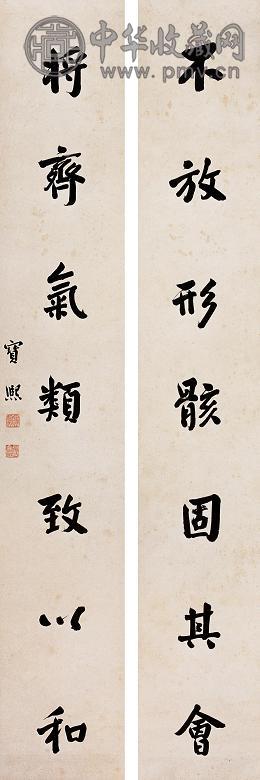 中华收藏网
www.pmv.cn
不放形骸固其會
將齊氣類致以和
寶熙